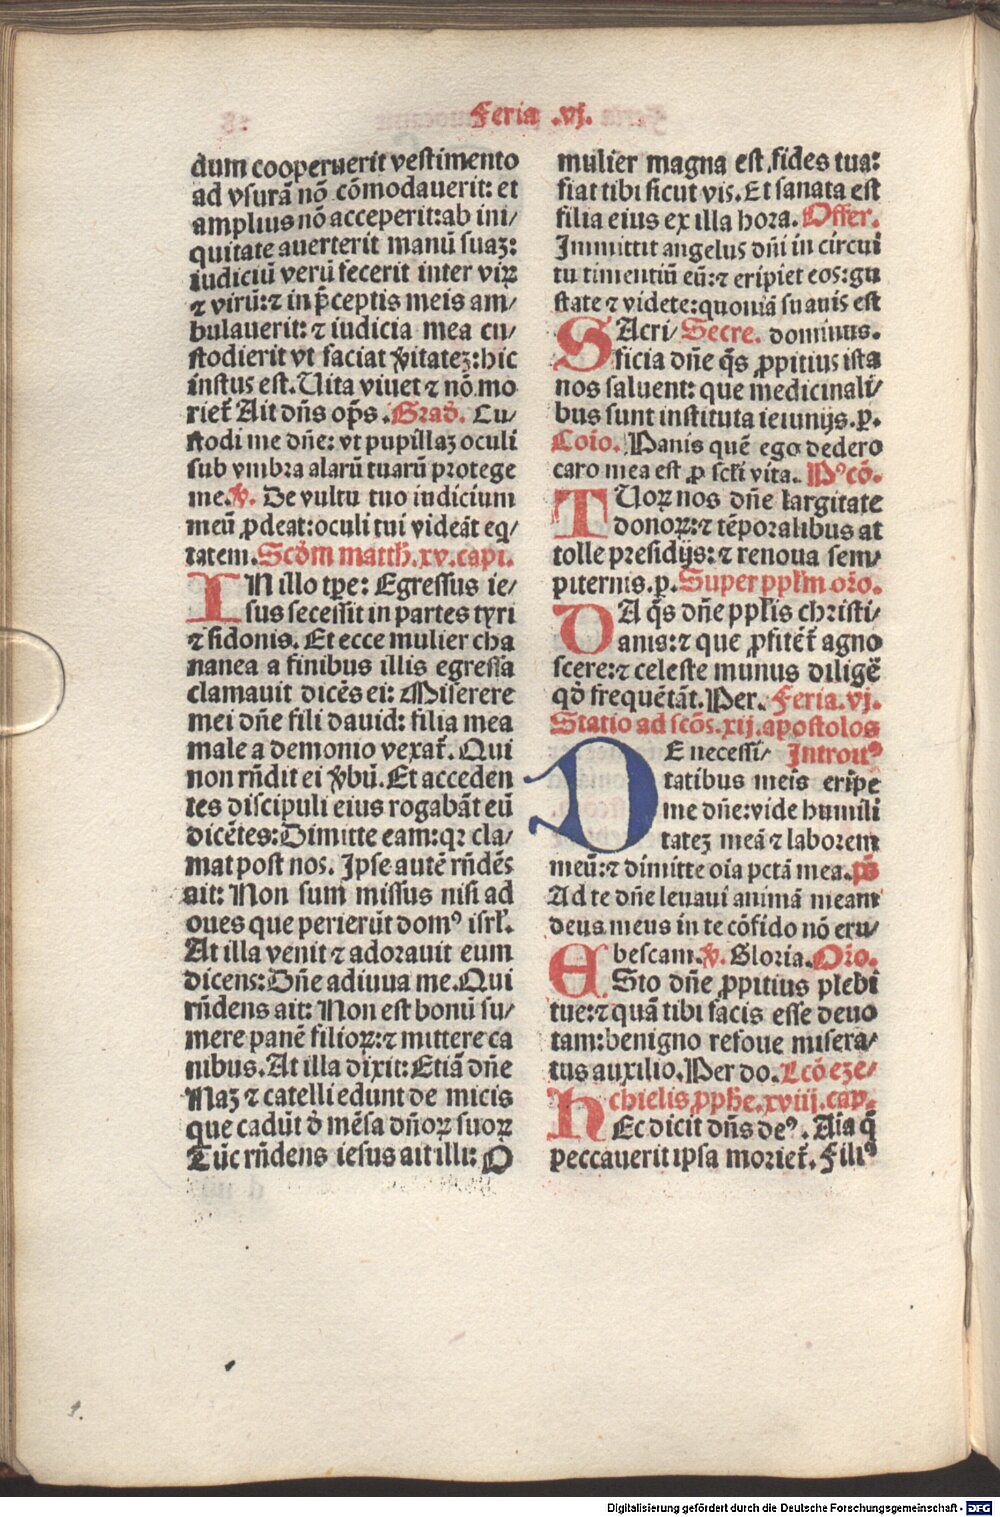 Feria .vj.
dum cooperuerit vestimento
ad vsurā nō cōmodauerit: et
amplius nō acceperit:ab ini/
quitate auerterit manū suaꝫ:
iudiciū verū fecerit inter virꝝ
⁊ virū:⁊ in p̄ceptis meis am/
bulauerit: ⁊ iudicia mea cu/
stodierit vt faciat v̓itateꝫ:hic
iustus est. Uita viuet ⁊ nō mo
riet᷑ Ait dn̄s op̄s . Grad̓. Cu/
stodi me dn̄e: vt pupillaꝫ oculi
sub vmbra alarū tuarū protege
me. v̓. De vultu tuo iudicium
meū ꝓdeat:oculi tui videāt eq̄/
tatem. Scd̓m matth̄.xv.capi.
IN illo tp̄e: Egressus ie/
sus secessit in partes tyri
⁊ sidonis. Et ecce mulier cha
nanea a finibus illis egressa
clamauit dicēs ei: Miserere
mei dn̄e fili dauid: filia mea
male a demonio vexat᷑. Qui
non rn̄dit ei v̓bū. Et acceden
tes discipuli eius rogabāt eū
dicētes:Dimitte eam:qꝛ cla/
mat post nos. Ipse autē rn̄dēs
ait: Non sum missus nisi ad
oues que perierūt domꝰ isrl̄.
At illa venit ⁊ adorauit eum
dicens:Dn̄e adiuua me. Qui
rn̄dens ait: Non est bonū su/
mere panē filioꝝ:⁊ mittere ca
nibus. At illa dixit: Etiā dn̄e
Naꝫ ⁊ catelli edunt de micis
que cadūt d̓ mēsa dn̄oꝝ suoꝝ
Tūc rn̄dens iesus ait illi: O
mulier magna est fides tua:
fiat tibi sicut vis. Et sanata est
filia eius ex illa hora. Offer.
Immittit angelus dn̄i in circui
tu timentiū eū:⁊ eripiet eos:gu
state ⁊ videte:quoniā suauis est
SAcri/ Secre. dominus.
ficia dn̄e q̄s ꝓpitius ista
nos saluent: que medicinali/
bus sunt instituta ieiunijs.p̱.
Coīo. Panis quē ego dedero
caro mea est ꝓ scl̓i vita. Pꝰcō.
TUoꝝ nos dn̄e largitate
donoꝝ:⁊ tēporalibus at
tolle presidijs:⁊ renoua sem/
piternis.p̱. Super pplm̄ orō.
DA q̄s dn̄e ppl̓is christi/
anis:⁊ que ꝓfitēt᷑ agno
scere:⁊ celeste munus diligē
qd̓ frequētāt. Per. Feria.vj.
Statio ad scōs.xij.apostolos
DE necessi/ Introitꝰ
tatibus meis eripe
me dn̄e:vide humili
tateꝫ meā ⁊ laborem
meū:⁊ dimitte oīa pctā mea. ps̄
Ad te dn̄e leuaui animā meam
deus meus in te cōfido nō eru/
bescam. v̓. Gloria. Orō.
ESto dn̄e ꝓpitius plebi
tue:⁊ quā tibi facis esse deuo
tam:benigno refoue misera/
tus auxilio. Per do. Lcō eze/
chielis ꝓph̄e.xviij.cap.
HEc dicit dn̄s deꝰ. Aīa q̄
peccauerit ipsa moriet᷑. Filiꝰ
Digitalisierung gefördert durch die Deutsche Forschungsgemeinschaft - DFG